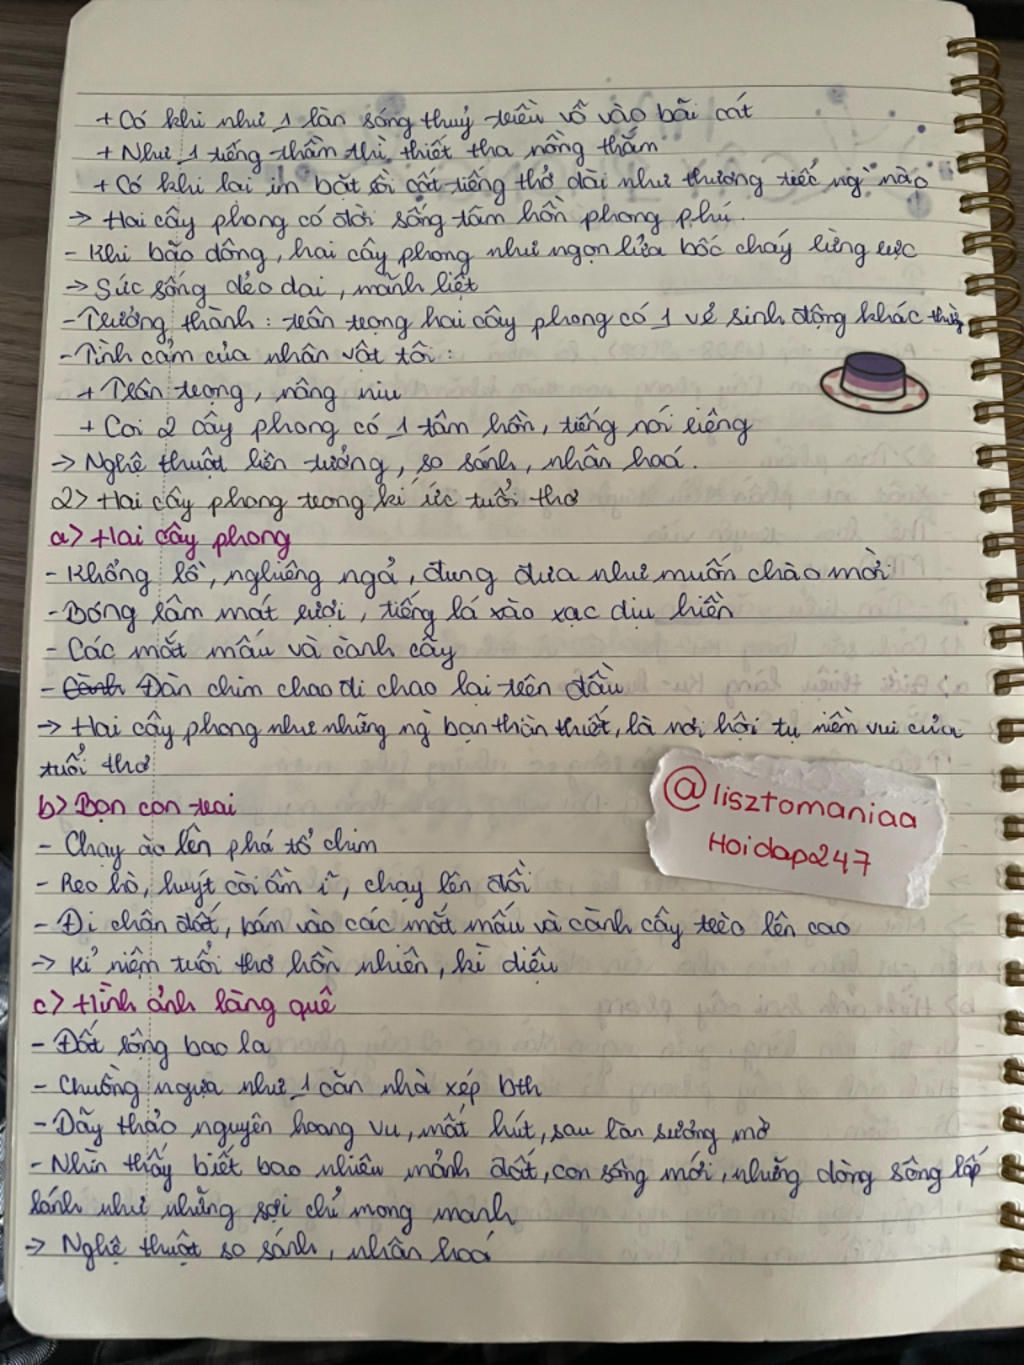 + Có khi như 1 làn sóng thuỷ triều vỗ vào bãi cát
+ Như 1 tiếng thầm thì, thiết tha nồng thắm
+ Có khi lại im bặt rồi cất tiếng thở dài như thương tiếc ng` nào
→ Hai cây phong có đời sống tâm hồn phong phú.
- Khi bão dông, hai cây phong như ngọn lửa bốc cháy rừng rực
→ Sức sống dẻo dai, mãnh liệt
- Trưởng thành: trân trọng hai cây phong có 1 vẻ sinh động khác thường
- Tình cảm của nhân vật tôi:
+ Trân trọng, nâng niu
+ Coi 2 cây phong có 1 tâm hồn, tiếng nói riêng
→ Nghệ thuật liên tưởng, so sánh, nhân hoá.
2> Hai cây phong trong kí ức tuổi thơ
a> Hai cây phong
- Khổng lồ, nghiêng ngả, đung đưa như muốn chào mời
- Bóng râm mát rượi, tiếng lá xào xạc dịu hiền
- Các mắt mấu và cành cây
- Cành Đàn chim chao đi chao lại trên đầu
→ Hai cây phong như những ng` bạn thân thiết, là nơi hội tụ niềm vui của
tuổi thơ
@lisztomaniaa
Hoidap247
b> Bọn con trai
- Chạy ào lên phá tổ chim
- Reo hò, huýt còi ầm ĩ, chạy lên đồi
- Đi chân đất, bám vào các mắt mấu và cành cây trèo lên cao
→ Kỉ niệm tuổi thơ hồn nhiên, kì diệu
c> Hình ảnh làng quê
- Đất rộng bao la
- Chuồng ngựa như 1 căn nhà xép bth
- Dãy thảo nguyên hoang vu, mất hút, sau làn sương mờ
- Nhìn thấy biết bao nhiêu mảnh đất, con sông mới, những dòng sông lấp
lánh như những sợi chỉ mong manh
→ Nghệ thuật so sánh, nhân hoá